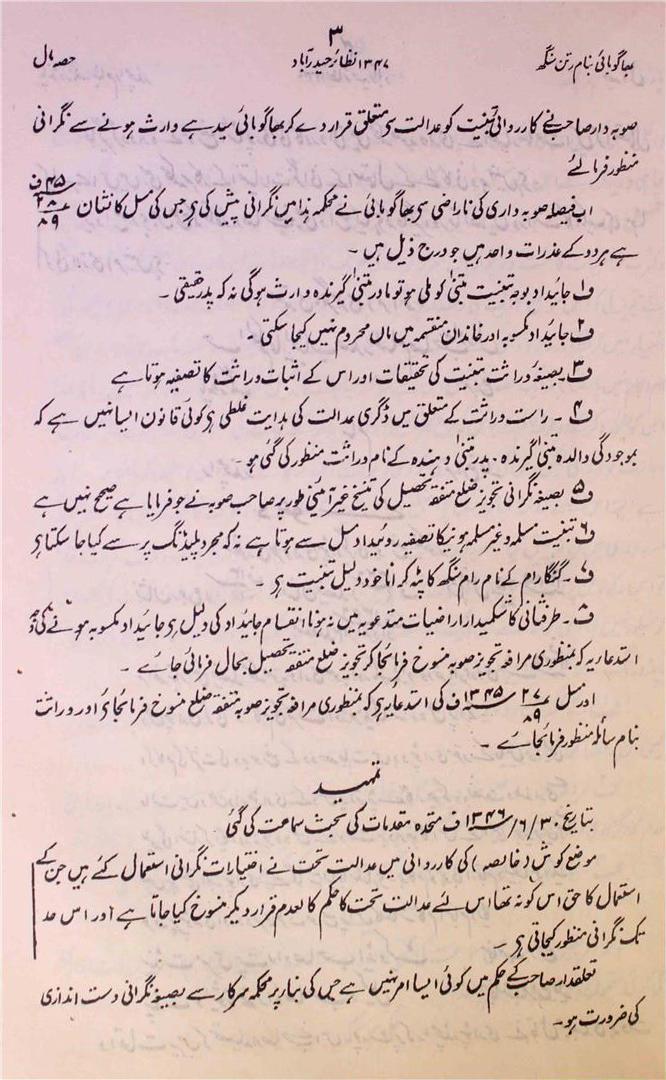 ۳
بھاگو بائی بنام رتن سنگھ ۱۳۴۷ نظائر حیدرآباد حصہ مال
صوبہ دار صاحب نے کارروائی تبنیت کو عدالت سی متعلق قرار دے کر بھاگو بائی سیدہے وارث ہونے سے نگرانی
منظور فرمائے
اب فیصلہ صوبہ داری کی ناراضی سی بھاگو بائی نے محکمہ ہذا میں نگرانی پیش کی ہی جس کی مسل کا نشان ۲۸/۸۹ ۴۵ ف
ہے ہر دو کے عذرات واحد ہیں جو درج ذیل ہیں ۔
ف۱ جائیداد بوجہ تبنیت متبنیٰ کو ملی ہو تو مادر متبنیٰ گیرندہ وارث ہوگی نہ کہ پدر حقیقی ۔
ف۲ جائیداد مکسوبہ اور خاندان منقسمہ میں ماں محروم نہیں کیجا سکتی ۔
ف۳ بصیغہ وراثت تبنیت کی تحقیقات اور اس کے اثبات وراثت کا تصفیہ ہوتا ہے
ف۴ ۔ راست وراثت کے متعلق میں ڈگری عدالت کی ہدایت غلطی ہی کوئی قانون ایسا نہیں ہے کہ
بموجودگی والدہ متبنیٰ گیرندہ ۔ پدر متبنیٰ دہندہ کے نام وراثت منظور کی گئی ہو ۔
ف۵ بصیغہ نگرانی تجویز ضلع متفقہ تحصیل کی تنسیخ غیر آئینی طور پر صاحب صوبہ نے جو فرمایا ہے صحیح نہیں ہے
ف۶ تبنیت مسلمہ و غیر مسلمہ ہونیکا تصفیہ روئیداد مسل سے ہوتا ہے نہ کہ مجرد پلیڈنگ پر سے کیا جا سکتا ہی
ف۷ ۔ گنگا رام کے نام رام سنگھ کا پٹہ کرانا خود دلیل تبنیت ہی ۔
ف۸ ۔ طرفثانی کا شکمیدار اراضیات متدعویہ میں نہ ہونا انقسام جائیداد کی دلیل ہی جائیداد مکسوبہ ہونے کی وجہ
استدعا ہے کہ بمنظوری مرافعہ تجویز صوبہ منسوخ فرمائجا کر تجویز ضلع متفقہ تحصیل بحال فرمائی جائے ۔
اور مسل ۲۷/۸۹ ۱۳۴۵ ف کی استدعا یہ ہی کہ بمنظوری مرافعہ تجویز صوبہ متفقہ ضلع منسوخ فرمائجائے اور وراثت
بنام سائلہ منظور فرمائجائے ۔
تمہید
بتاریخ ۳۰/۶/۱۳۴۶ ف متحدہ مقدمات کی بحث سماعت کی گئی
موضع کوش (خالصہ) کی کارروائی میں عدالت تحت نے اختیارات نگرانی استعمال کئے ہیں جن کے
استعمال کا حق اس کو نہ تھا اس لئے عدالت تحت کا حکم کالعدم قرار دیکر منسوخ کیا جاتا ہے اور اس حد
تک نگرانی منظور کیجاتی ہی ۔
تعلقدار صاحب کے حکم میں کوئی ایسا امر نہیں ہے جس کی بنار پر محکمہ سرکار سے بصیغہ نگرانی دست اندازی
کی ضرورت ہو ۔